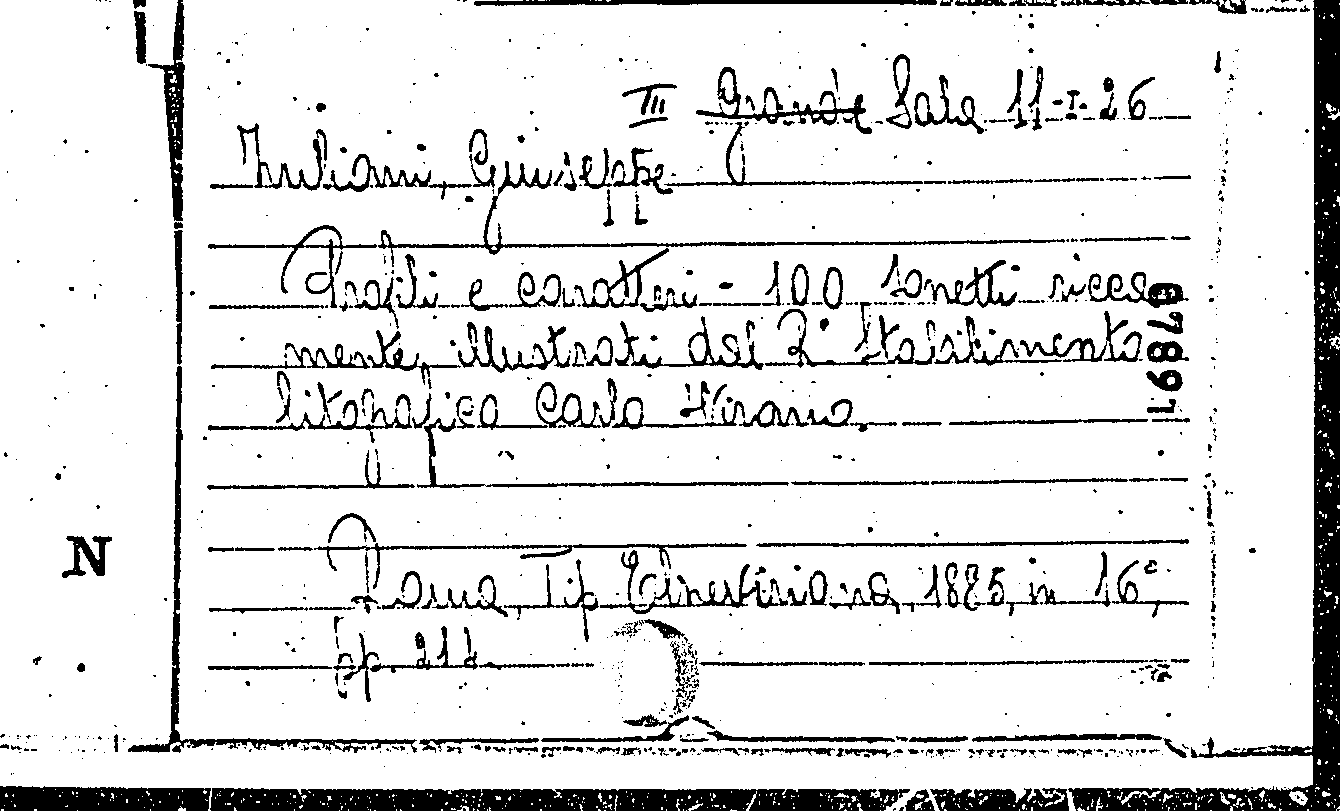 III Grande Sala 11-I-26
Zuliani, Giuseppe
Profili e caratteri - 100 sonetti ricca
mente illustrati dal R.° Stabilimento
litografico Carlo
Roma, Tip. 1885, in 16°,
pp. 212.
07897
N